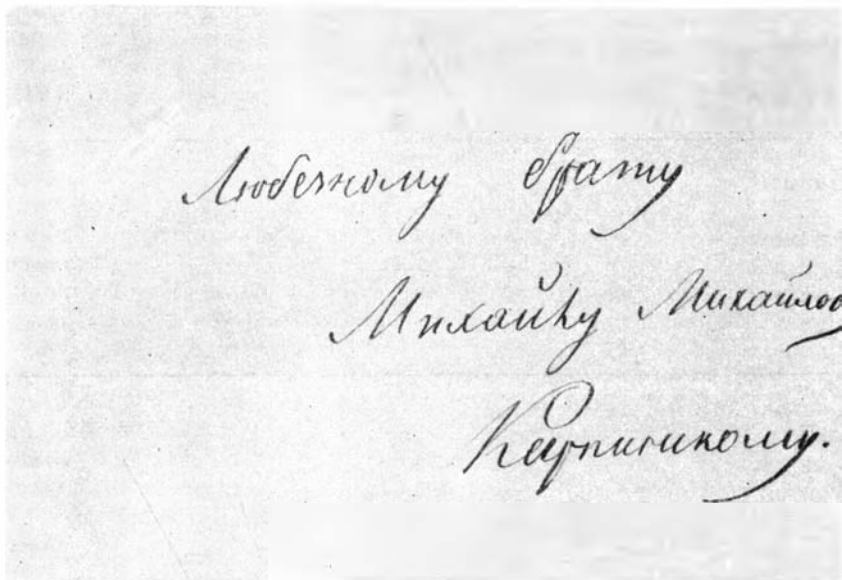 Любезному брату
Михайлу Михайлов
Карпинскому.